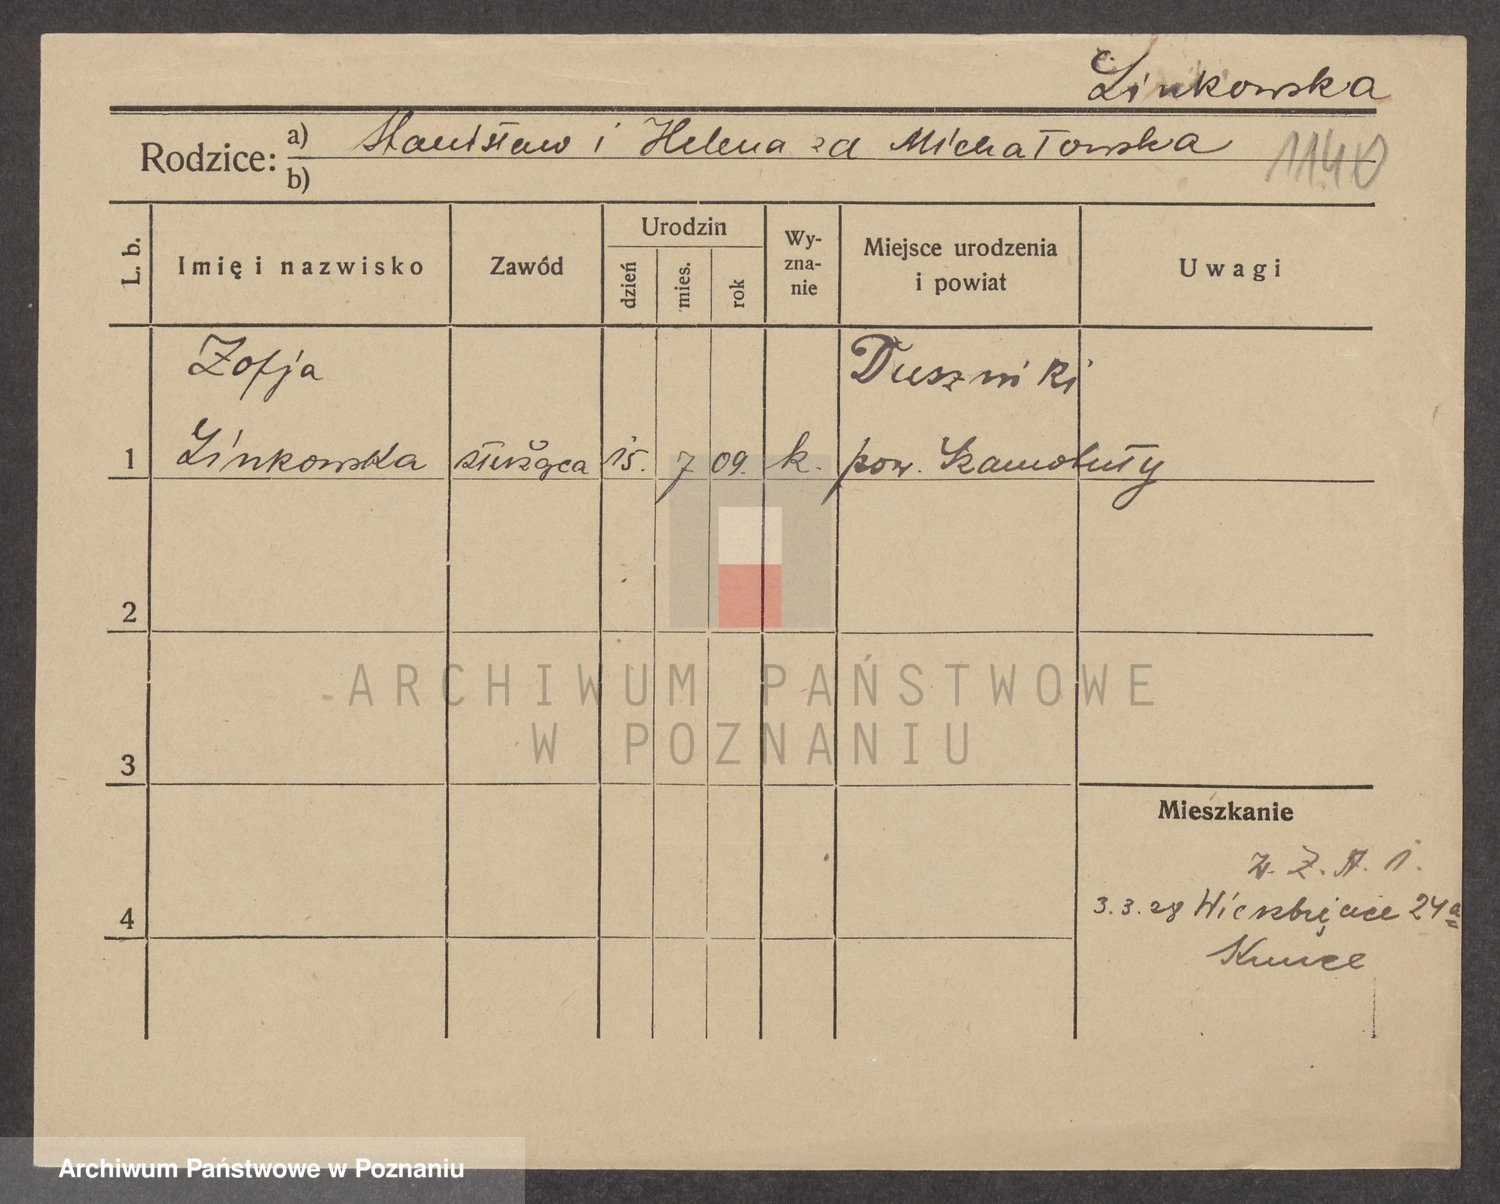 Linkowska
Rodzice: a) Stanisław i Helena zd Michałowska
b)
1140
L. b.
Imię i nazwisko
Zawód
Urodzin
dzień
mies.
rok
Wy-
zna-
nie
Miejsce urodzenia
i powiat
Uwagi
Zofja
Duszniki
1 Linkowska służąca 15. 7 09. k. pow. Szamotuły
2
3
4
Mieszkanie
3.3.28 Wierzbięcice 24a
ARCHIWUM PAŃSTWOWE
W POZNANIU
Archiwum Państwowe w Poznaniu